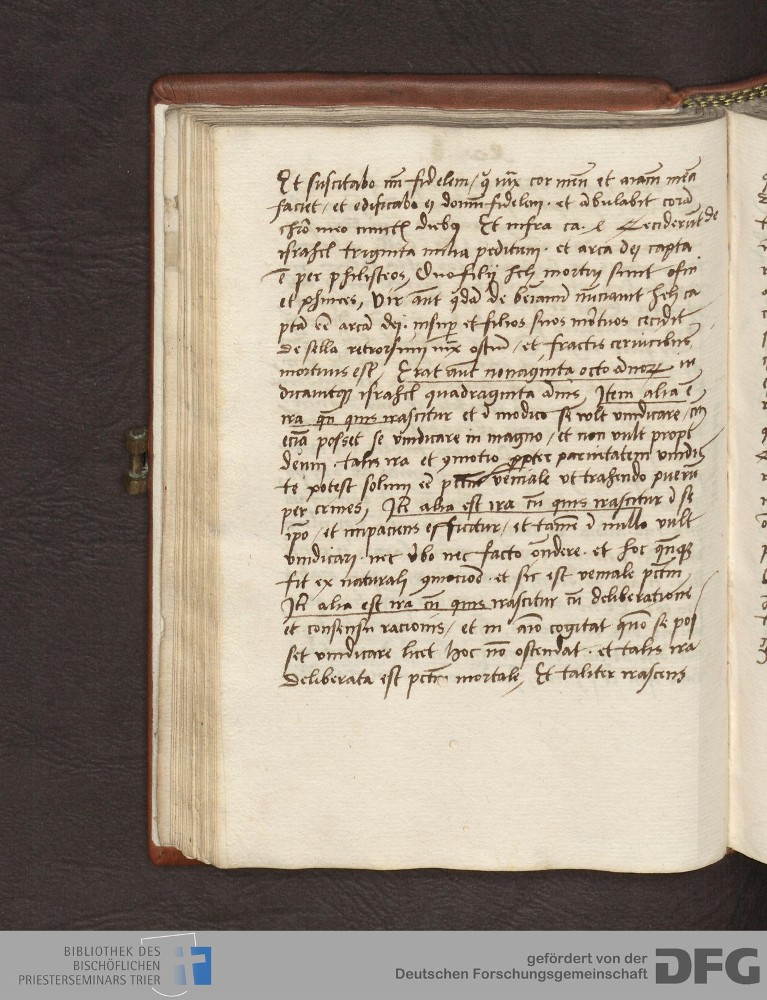 Et suscitabo m̄ fidelem / q̄ iux̄ cor meū et aīam meā
faciet / et edificabo ei domū fidelem · et ābulabit corā
chrō meo cunctꝭ diebꝰ Et infra ca. Ceciderūt de
israhel triginta milia peditum · et arca dei capta
ē per philisteos, Duo filij heli mortui sunt ofni
et phinees, Vir aut̄ qdā de beniamī nūciauit heli ca
ptā eē arcā dei · insup̄ et filios suos mortuos cecidit
de sella retrorsum iux̄ ostiū / et fractis ceruicibus
mortuus est, Erat aut̄ nonaginta octo annoꝝ iu
dicauitqꝫ israhel quadraginta ānis, Item alia ē
ira qn̄ quis irascitur et ī modico se vult vindicare /
eciā posset se vindicare in magno / et non vult propt̄
deum · talis ira et ꝯmotio ꝓpter paruitatem vindic
te potest solum eē pctm̄ veniale vt trahendo puerū
per crines, Itē alia est ira cū quis irascitur ī se
ip̄o / et impaciens efficitur / et tamē ī nullo vult
vindicari · nec v̄bo nec facto on̄dere · et hoc qn̄qꝫ
fit ex naturali ꝯmociōe · et sic est veniale pctm̄
Itē alia est ira cū quis irascitur cū deliberatione
et consensu racionis / et in aīo cogitat quō se pos
set vindicare licet hoc nō ostendat · et talis ira
deliberata est pctm̄ mortale, Et taliter irascens
BIBLIOTHEK DES
BISCHÖFLICHEN
PRIESTERSEMINARS TRIER
gefördert von der
Deutschen Forschungsgemeinschaft
DFG